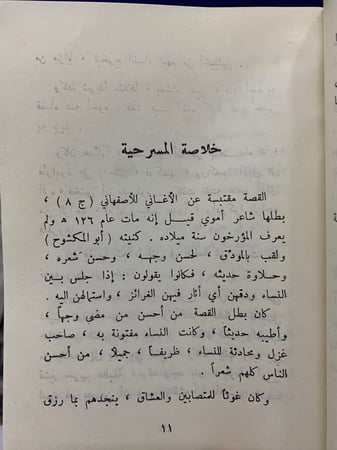 خلاصة المسرحية
القصة مقتبسة عن الأغاني للأصفهاني ( ج ٨ ) ،
بطلها شاعر أموي قيل إنه مات عام ١٢٦ ه ولم
يعرف المؤرخون سنة ميلاده . كنيته ( أبو المكشوح )
ولقب بالمودق ، لحسن وجهه ، وحسن شعره ،
وحلاوة حديثه ، فكانوا يقولون : إذا جلس بين
النساء ودقهن أي أثار فيهن الغرائز ، واستمالهن اليه .
كان بطل القصة من أحسن من مضى وجهاً ،
وأطيبه حديثاً ، وكانت النساء مفتونة به ، صاحب
غزل ومحادثة للنساء ، ظريفاً ، جميلا ، من أحسن
الناس كلهم شعراً .
وكان غوثاً للمتصابين والعشاق ، ينجدهم بما رزق
١١